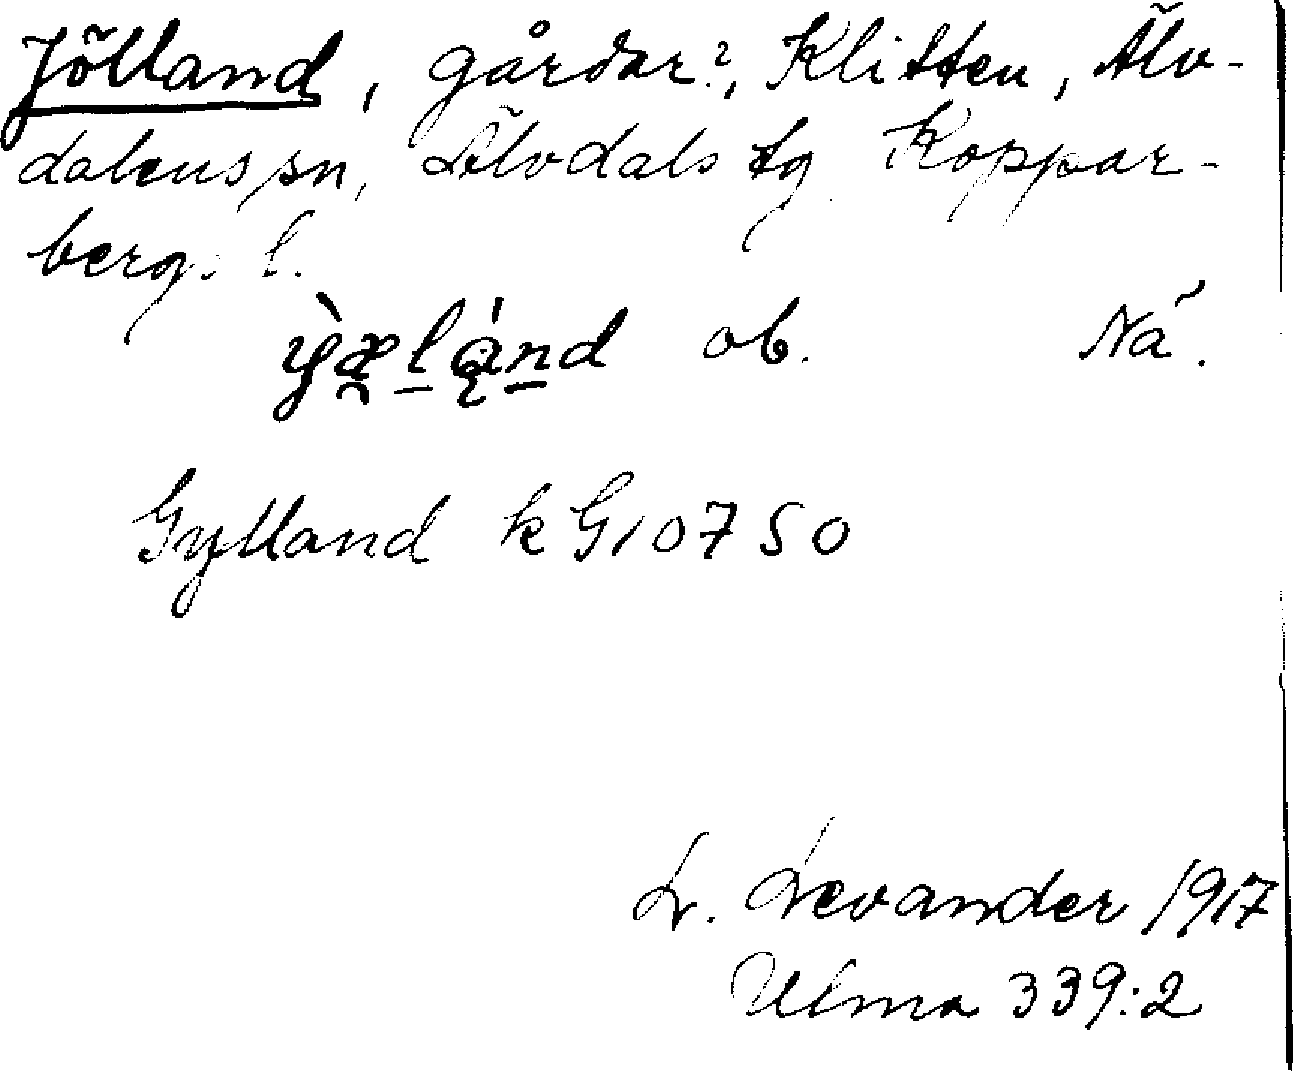 Jölland, gårdar?, Klitten, Älv-
dalens sn, Älvdals tg Koppar-
bergs l.
ob. Nä.
Gylland kG10750
L. Levander 1917
Ulma 339:2